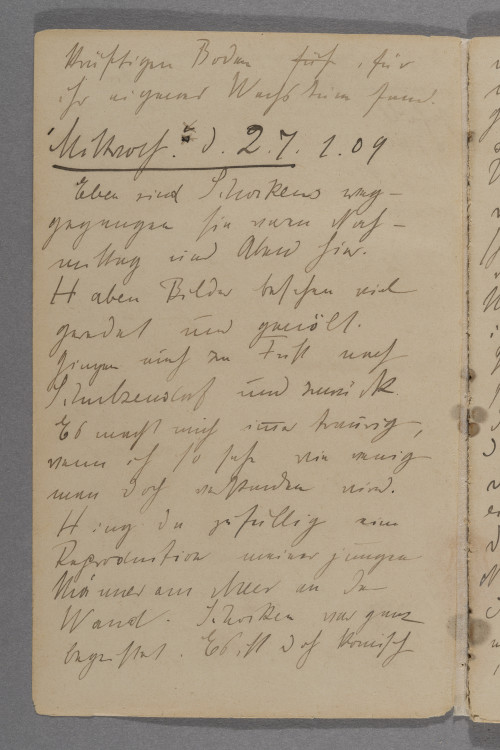 kräftigen Boden für
ihr eigenes Wachstum fand.
Mittwoch. d. 27. 1. 09
Eben sind Schockens weg-
gegangen sie waren Nach-
mittag und Abend hier.
Haben Bilder besehen viel
geredet und
Gingen auch zu Fuß nach
Schulzendorf und zurück.
Es macht mich immer traurig,
wenn ich so sehe wie wenig
man doch verstanden wird.
Hing da zufällig eine
Reproduktion meiner jungen
Männer am Meer an der
Wand. Schocken war ganz
begeistert. Es ist doch komisch